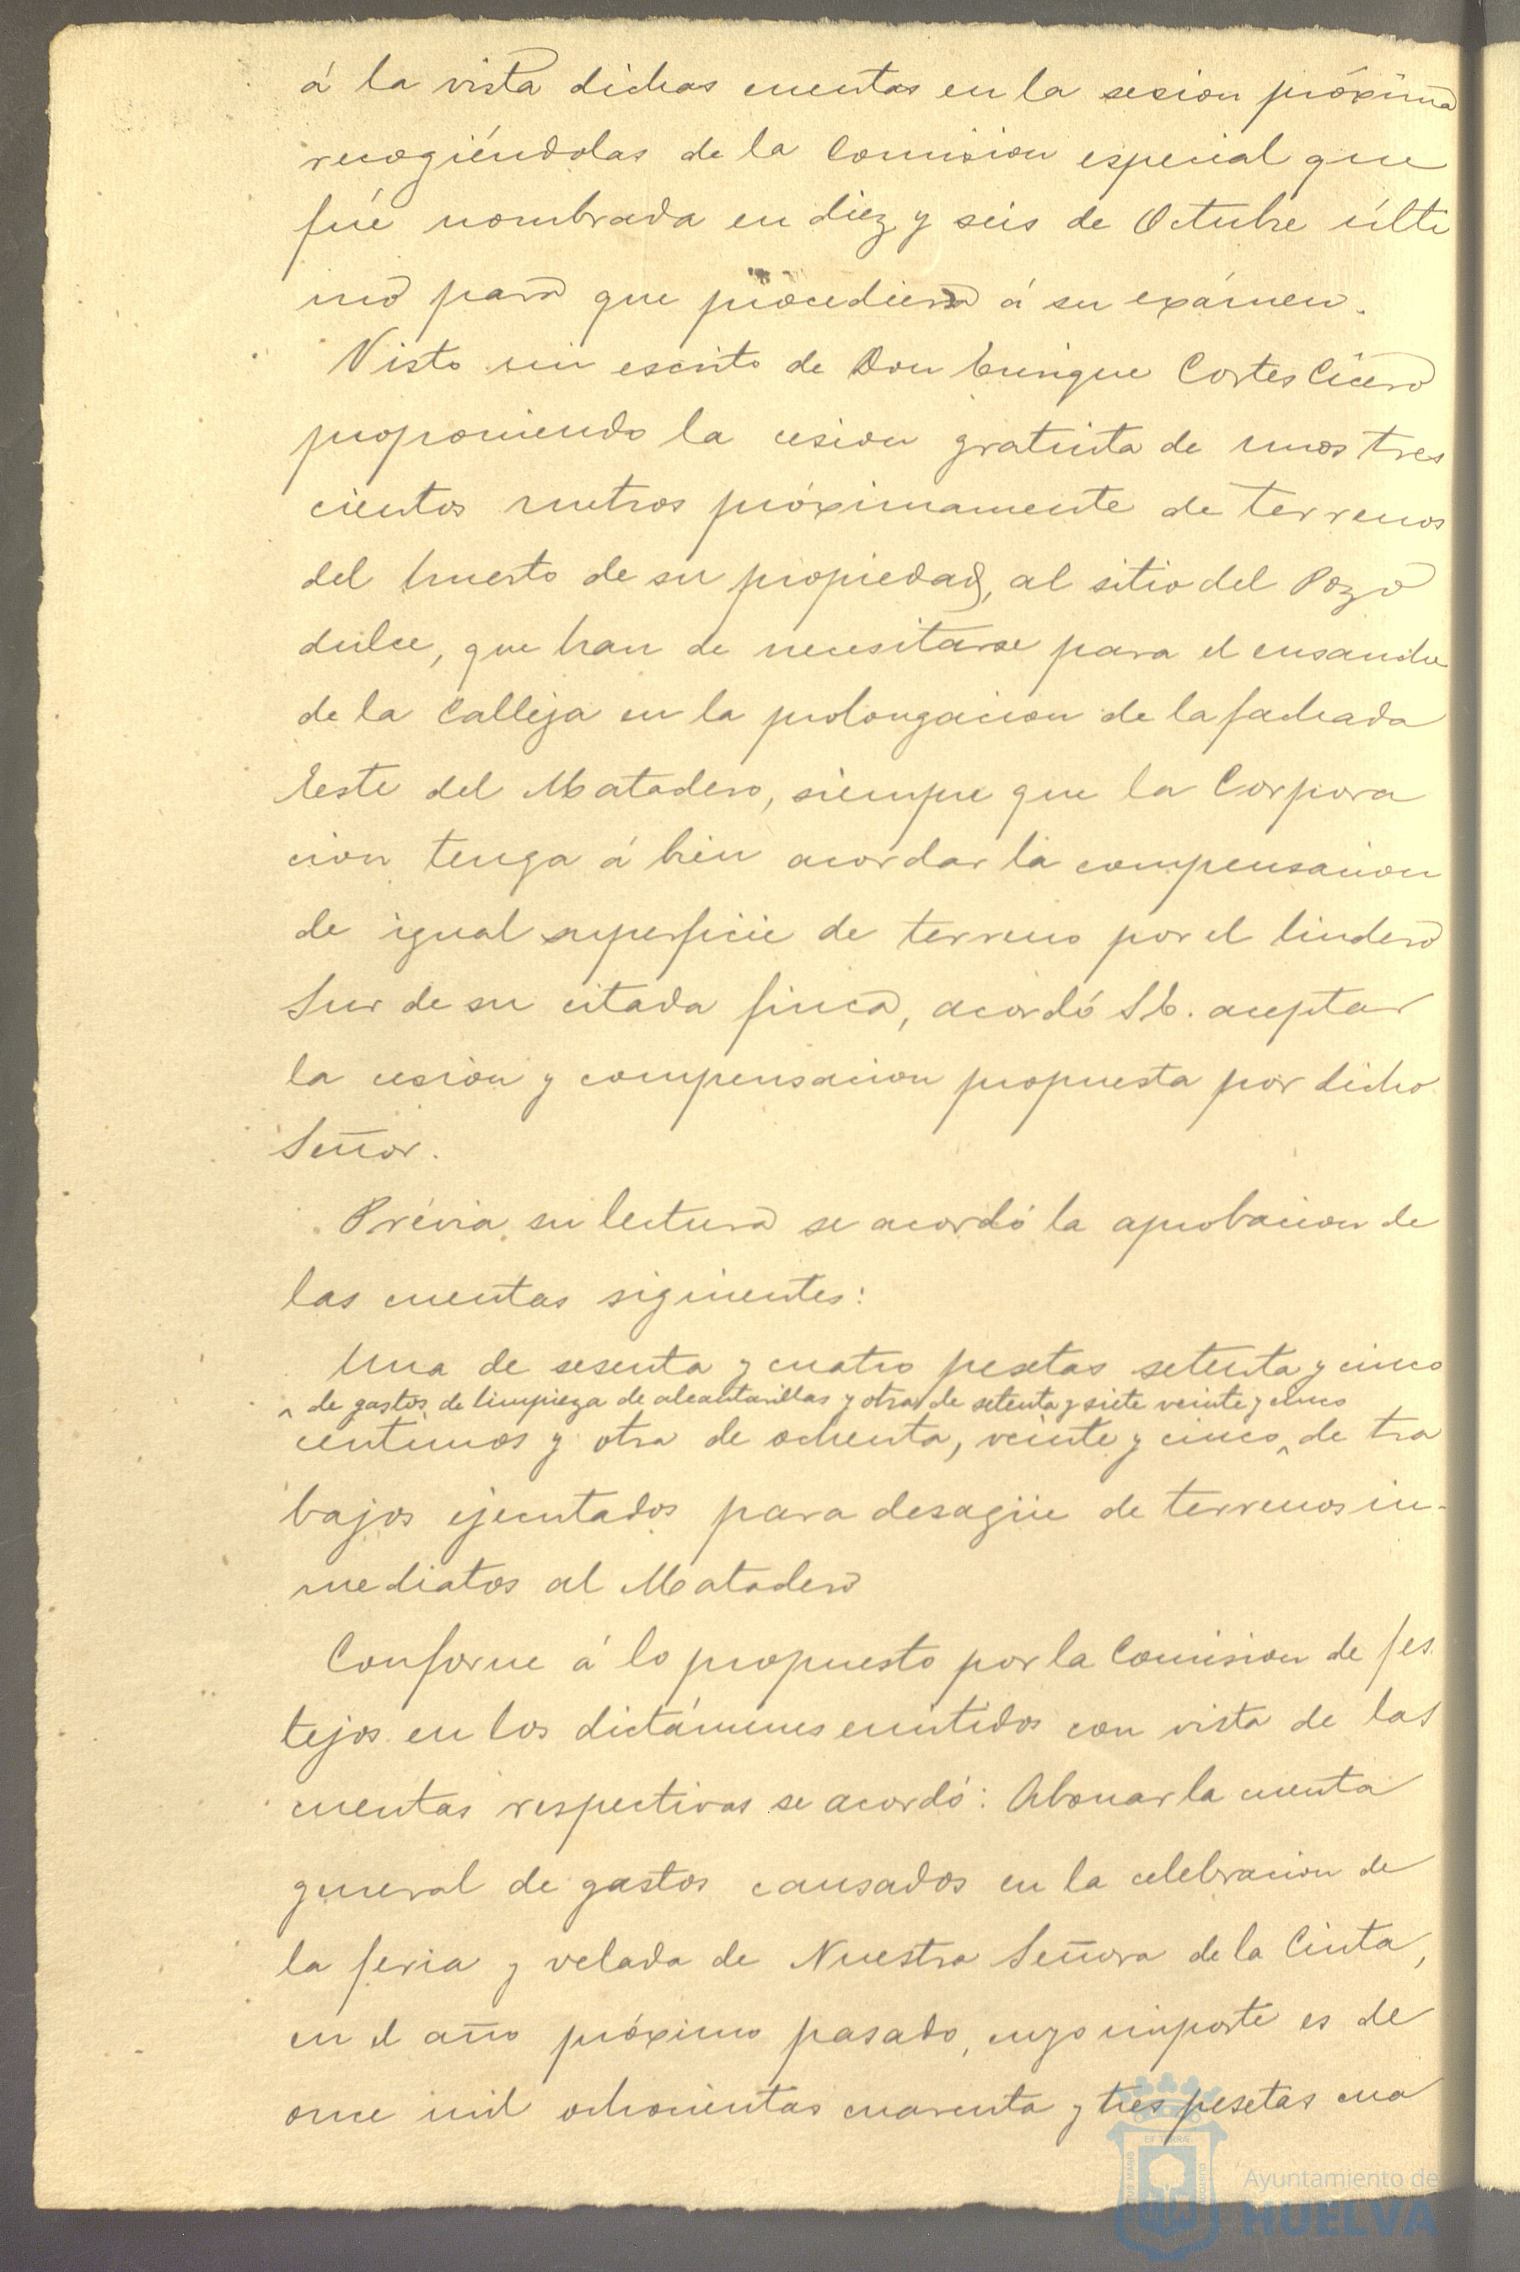 á la vista dichas cuentas en la sesion próxima
recogiéndolas de la Comision especial que
fué nombrada en diez y seis de Octubre últi
mo para que procediera á su exámen.
Visto un escrito de Don Enrique Cortes Cícero
proponiendo la cesion gratuita de unos tres
cientos metros próximamente de terrenos
del huerto de su propiedad, al sitio del Pozo
dulce, que han de necesitarse para el ensanche
de la Calleja en la prolongacion de la fachada
Este del Matadero, siempre que la Corpora
cion tenga á bien acordar la compensacion
de igual superficie de terreno por el lindero
Sur de su citada finca, acordó S.E. aceptar
la cesion y compensacion propuesta por dicho
Señor.
Prévia su lectura se acordó la aprobacion de
las cuentas siguientes:
Una de sesenta y cuatro pesetas setenta y cinco
^ de gastos de limpieza de alcantarillas y otra de setenta y siete veinte y cinco
centimos y otra de ochenta, veinte y cinco ^ de tra
bajos ejecutados para desagüe de terrenos in-
mediatos al Matadero
Conforme á lo propuesto por la Comision de fes
tejos en los dictámenes emitidos con vista de las
cuentas respectivas se acordó: Abonar la cuenta
general de gastos causados en la celebracion de
la feria y velada de Nuestra Señora de la Cinta,
en el año próximo pasado, cuyo importe es de
once mil ochocientas cuarenta y tres pesetas cua
Ayuntamiento de
HUELVA